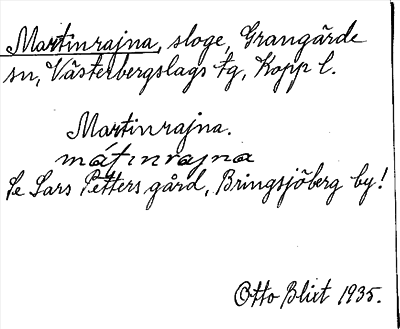 Martinrajna, sloge, Grangärde
sn, Västerbergslags tg, Kopp l.
Martinrajna.
mát̩inrajna
Se Lars Petters gård, Bringsjöberg by!
Otto Blixt 1935.